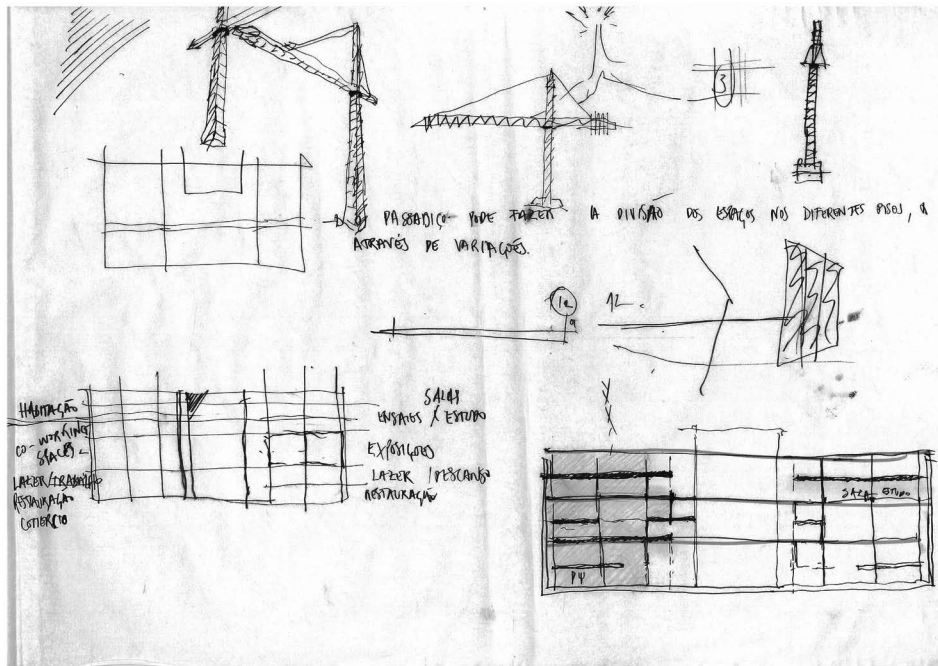 3
O PASSADIÇO PODE FAZER A DIVISÃO DOS ESPAÇOS NOS DIFERENTES PISOS,
ATRAVÉS DE VARIAÇÕES.
12
12.
HABITAÇÃO
CO-WORKING
SPACES
LAZER/TRABALHO
RESTAURAÇÃO
COMÉRCIO
SALAS
ENSAIOS / ESTUDO
EXPOSIÇÕES
LAZER / DESCANSO
RESTAURAÇÃO
SALA ESTUDO